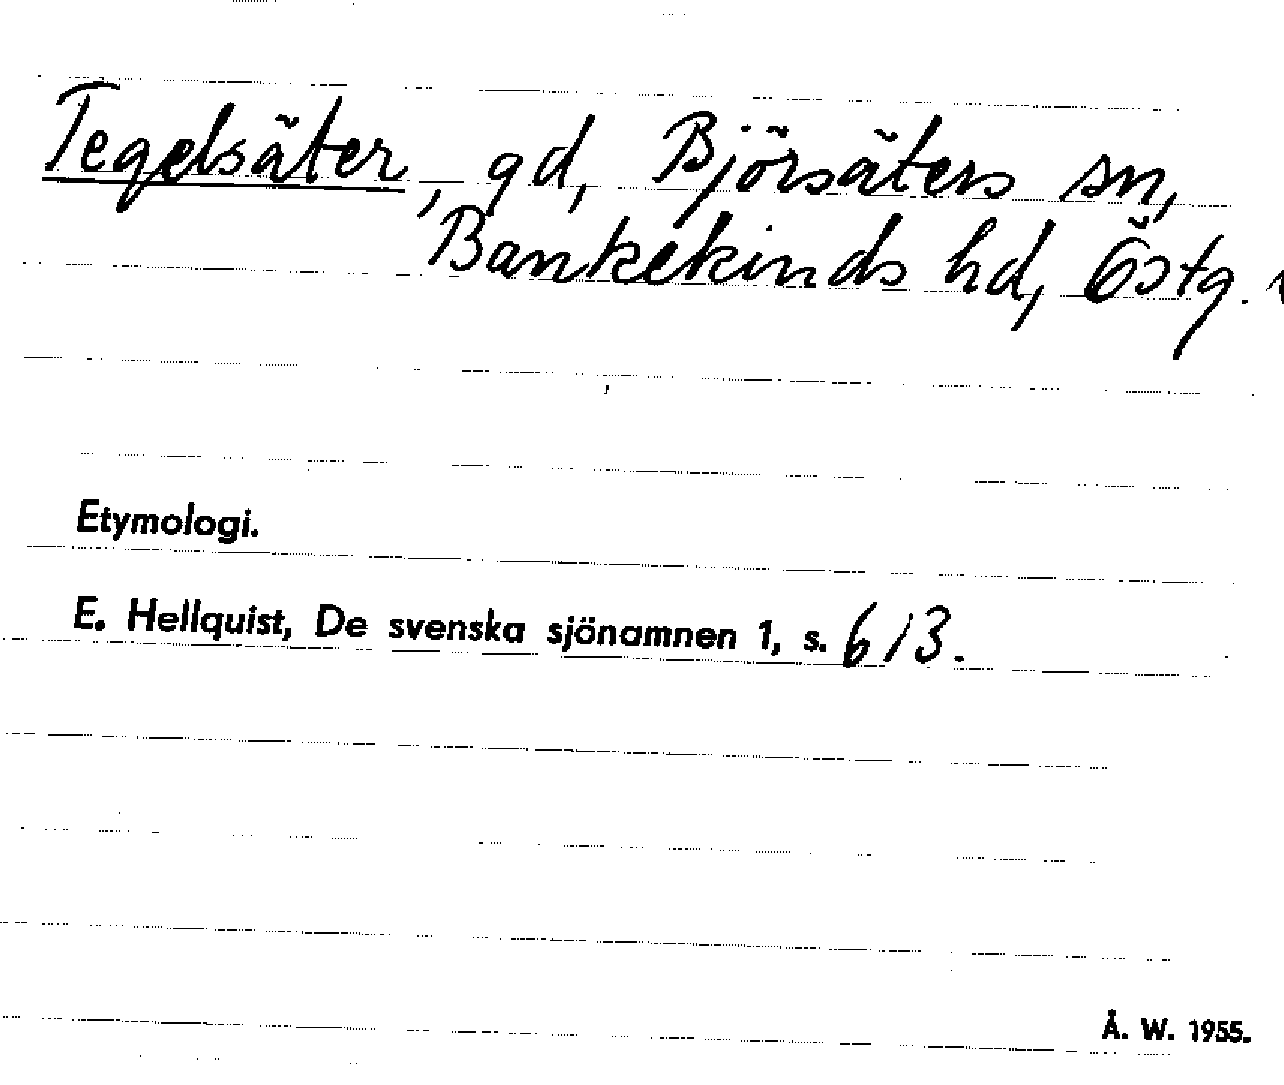 Tegelsäter, gd, Björsäters sn,
Bankekinds hd, Östg.
Etymologi.
E. Hellquist, De svenska sjönamnen 1, s. 613.
Å. W. 1955.